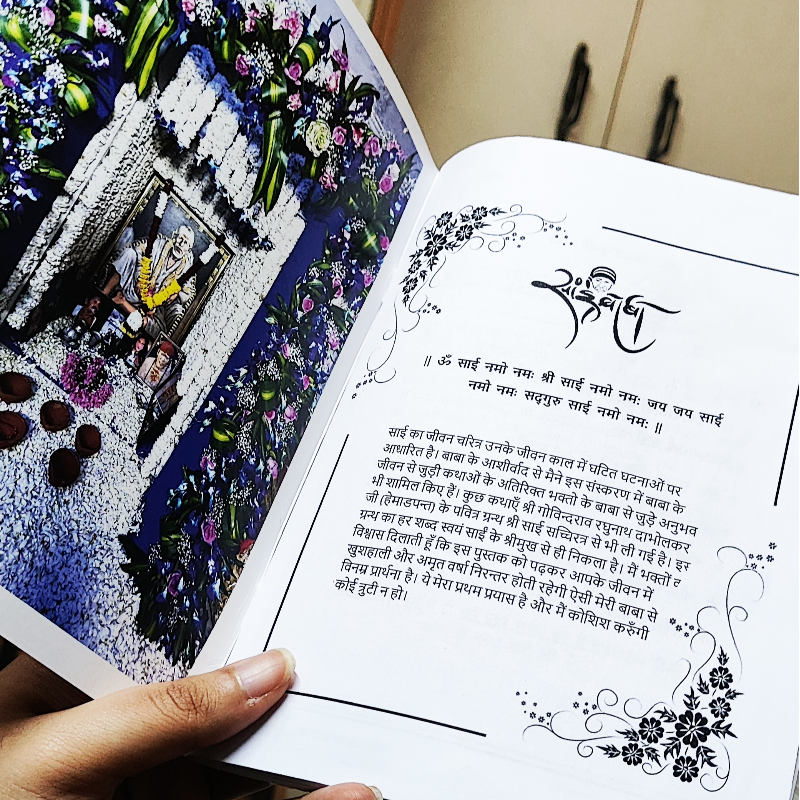 साईं बाबा
॥ ॐ साई नमो नमः श्री साई नमो नमः जय जय साई
नमो नमः सद्गुरु साई नमो नमः ॥
साई का जीवन चरित्र उनके जीवन काल में घटित घटनाओं पर
आधारित है। बाबा के आशीर्वाद से मैने इस संस्करण में बाबा के
जीवन से जुड़ी कथाओं के अतिरिक्त भक्तो के बाबा से जुड़े अनुभव
भी शामिल किए हैं। कुछ कथाएँ श्री गोविन्दराव रघुनाथ दाभोलकर
जी (हेमाडपन्त) के पवित्र ग्रन्थ श्री साई सच्चिरत्र से भी ली गई है।
ग्रन्थ का हर शब्द स्वयं साईं के श्रीमुख से ही निकला है। मैं भक्तों
विश्वास दिलाती हूँ कि इस पुस्तक को पढ़कर आपके जीवन में
खुशहाली और अमृत वर्षा निरन्तर होती रहेगी ऐसी मेरी बाबा से
विनम्र प्रार्थना है। ये मेरा प्रथम प्रयास है और मैं कोशिश करुँगी
कोई त्रुटी न हो।